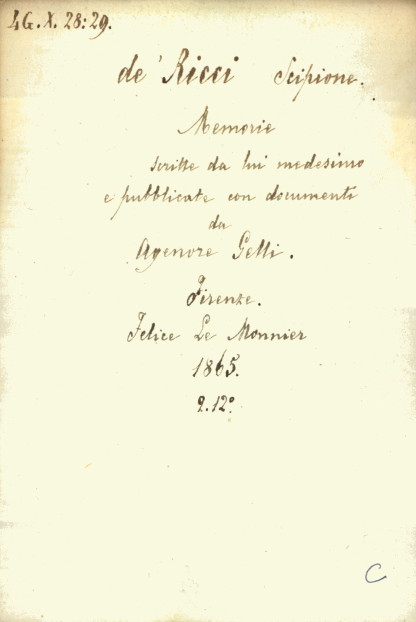 4G.X.28:29.
de' Ricci Scipione.
Memorie
scritte da lui medesimo
e pubblicate con documenti
da
Agenore Gelli.
Firenze.
Felice Le Monnier
1865.
2.12º
C